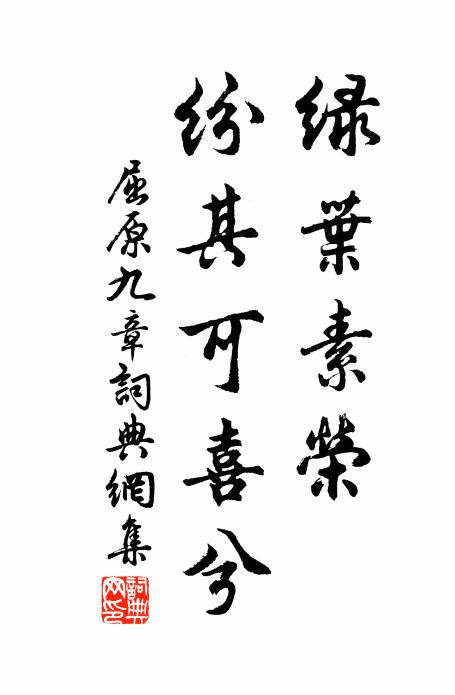 绿葉素榮
紛其可喜兮
屈原九章詞典網集
詞典网印